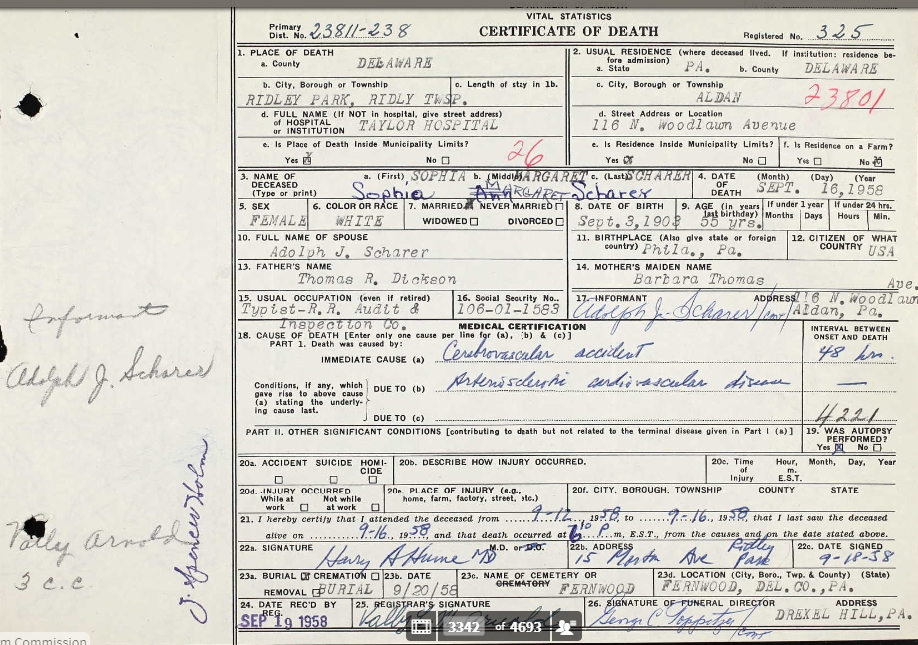 VITAL STATISTICS
CERTIFICATE OF DEATH
Primary Dist. No. 23811-238
Registered No. 325
1. PLACE OF DEATH
a. County DELAWARE
b. City, Borough or Township
RIDLEY PARK, RIDLY TWSP.
c. Length of stay in 1b.
d. FULL NAME (If NOT in hospital, give street address)
of HOSPITAL
or INSTITUTION TAYLOR HOSPITAL
e. Is Place of Death Inside Municipality Limits?
Yes ☒ No ☐
26
2. USUAL RESIDENCE (where deceased lived. If institution: residence be-
fore admission)
a. State PA. b. County DELAWARE
c. City, Borough or Township
ALDAN
23801
d. Street Address or Location
116 N. Woodlawn Avenue
e. Is Residence Inside Municipality Limits?
Yes ☒ No ☐
f. Is Residence on a Farm?
Yes ☐ No ☒
3. NAME OF
DECEASED
(Type or print)
a. (First) SOPHIA b. (Middle) MARGARET c. (Last) SCHARER
Sophia Ann MARGARET Scharer
4. DATE
OF
DEATH
(Month) (Day) (Year)
SEPT. 16, 1958
5. SEX
FEMALE
6. COLOR OR RACE
WHITE
7. MARRIED ☒ NEVER MARRIED ☐
WIDOWED ☐ DIVORCED ☐
8. DATE OF BIRTH
Sept. 3, 1903
9. AGE (in years
last birthday)
55 yrs.
If under 1 year
Months Days
If under 24 hrs.
Hours Min.
10. FULL NAME OF SPOUSE
Adolph J. Scharer
11. BIRTHPLACE (Also give state or foreign
country) Phila., Pa.
12. CITIZEN OF WHAT
COUNTRY USA
13. FATHER'S NAME
Thomas R. Dickson
14. MOTHER'S MAIDEN NAME
Barbara Thomas
15. USUAL OCCUPATION (even if retired)
Typist-R.R. Audit &
Inspection Co.
16. Social Security No..
106-01-1583
17. INFORMANT
Adolph J. Scharer
ADDRESS
116 N. Woodlawn Ave.
Aldan, Pa.
MEDICAL CERTIFICATION
18. CAUSE OF DEATH [Enter only one cause per line for (a), (b) & (c)]
PART 1. Death was caused by:
IMMEDIATE CAUSE (a) Cerebrovascular accident
INTERVAL BETWEEN
ONSET AND DEATH
48 hrs.
Conditions, if any, which
gave rise to above cause
(a) stating the underly-
ing cause last.
DUE TO (b) Arteriosclerotic cardiovascular disease
—
DUE TO (c)
4221
PART II. OTHER SIGNIFICANT CONDITIONS [contributing to death but not related to the terminal disease given in Part I (a)]
19. WAS AUTOPSY
PERFORMED?
Yes ☒ No ☐
20a. ACCIDENT SUICIDE HOMI-
CIDE
☐ ☐ ☐
20b. DESCRIBE HOW INJURY OCCURRED.
20c. Time
of
Injury
Hour, Month, Day, Year
m.
E.S.T.
20d. INJURY OCCURRED
While at
work ☐
Not while
at work ☐
20e. PLACE OF INJURY (e.g.,
home, farm, factory, street, etc.)
20f. CITY, BOROUGH, TOWNSHIP COUNTY STATE
21. I hereby certify that I attended the deceased from 9-12, 1958 to 9-16, 1958, that I last saw the deceased
alive on 9-16, 1958, and that death occurred at 6:10 P.m, E.S.T., from the causes and on the date stated above.
22a. SIGNATURE
M.D. or D.O.
Harry A Hume MD
22b. ADDRESS
15 Morton Ave Ridley
Park
22c. DATE SIGNED
9-18-58
23a. BURIAL ☒ CREMATION ☐
REMOVAL ☐ BURIAL
23b. DATE
9/20/58
23c. NAME OF CEMETERY OR
CREMATORY
FERNWOOD
23d. LOCATION (City, Boro., Twp. & County) (State)
FERNWOOD, DEL.CO.,PA.
24. DATE REC'D BY
REG.
SEP 19 1958
25. REGISTRAR'S SIGNATURE
26. SIGNATURE OF FUNERAL DIRECTOR
George C
ADDRESS
DREXEL HILL, PA.
Informant
Adolph J. Scharer
Vally Arnold
3 c.c.
J. Spencer Holm
3342 of 4693
m Commission